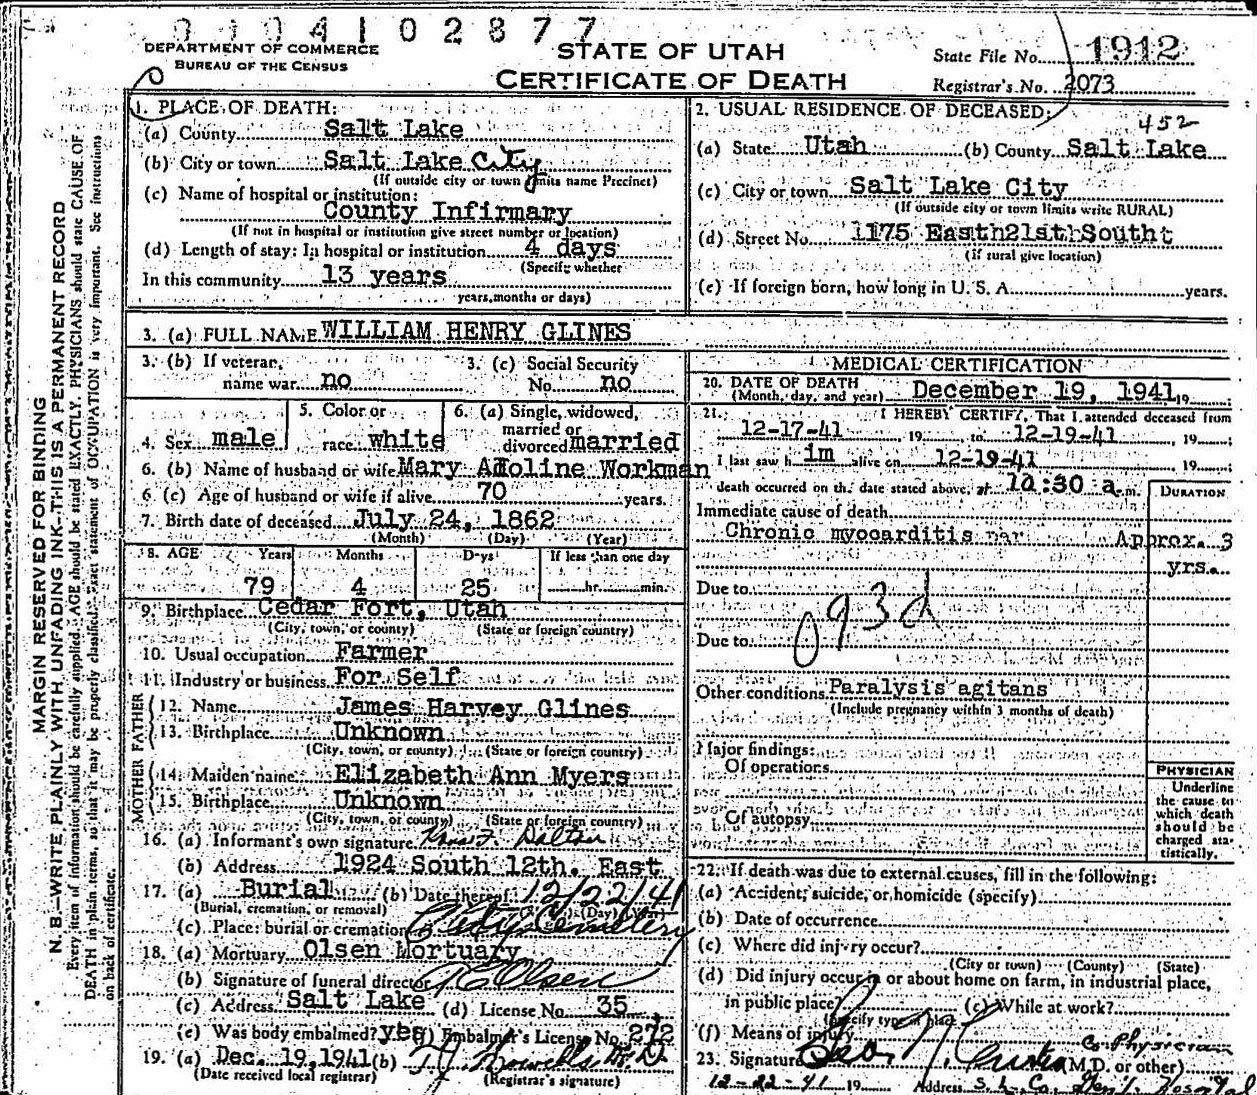 0004102877
DEPARTMENT OF COMMERCE
BUREAU OF THE CENSUS
STATE OF UTAH
CERTIFICATE OF DEATH
State File No. 1912
Registrar's No. 2073
MARGIN RESERVED FOR BINDING
N. B.—WRITE PLAINLY WITH UNFADING INK—THIS IS A PERMANENT RECORD
Every item of information should be carefully supplied. AGE should be stated EXACTLY. PHYSICIANS should state CAUSE OF
DEATH in plain terms, so that it may be properly classified. Exact statement of OCCUPATION is very important. See instructions
on back of certificate.
1. PLACE OF DEATH:
(a) County Salt Lake
(b) City or town Salt Lake City
(If outside city or town limits name Precinct)
(c) Name of hospital or institution:
County Infirmary
(If not in hospital or institution give street number or location)
(d) Length of stay: In hospital or institution 4 days
(Specify whether
In this community 13 years
years, months or days)
2. USUAL RESIDENCE OF DECEASED:
452
(a) State Utah (b) County Salt Lake
(c) City or town Salt Lake City
(If outside city or town limits write RURAL)
(d) Street No. 1175 Easth21sthSoutht
(If rural give location)
(e) If foreign born, how long in U. S. A. years.
3. (a) FULL NAME WILLIAM HENRY GLINES
3. (b) If veteran,
name war no
3. (c) Social Security
No. no
4. Sex male
5. Color or
race white
6. (a) Single, widowed,
married or
divorced married
6. (b) Name of husband or wife Mary Adoline Workman
6 (c) Age of husband or wife if alive 70 years.
7. Birth date of deceased July 24, 1862
(Month) (Day) (Year)
8. AGE Years Months Days If less than one day
79 4 25 hr. min.
9. Birthplace Cedar Fort, Utah
(City, town, or county) (State or foreign country)
10. Usual occupation Farmer
11. Industry or business For Self
FATHER
12. Name James Harvey Glines
13. Birthplace Unknown
(City, town, or county) (State or foreign country)
MOTHER
14. Maiden name Elizabeth Ann Myers
15. Birthplace Unknown
(City, town, or county) (State or foreign country)
16. (a) Informant's own signature Dalton
(b) Address 1924 South 12th. East
17. (a) Burial (b) Date thereof 12/22/41
(Burial, cremation, or removal) (Day) (Year)
(c) Place: burial or cremation Cemetery
18. (a) Mortuary Olsen Mortuary
(b) Signature of funeral director Olsen
(c) Address Salt Lake (d) License No. 35
(e) Was body embalmed? yes (f) Embalmer's License No. 272
19. (a) Dec. 19, 1941 (b) T.J. Howells M.D.
(Date received local registrar) (Registrar's signature)
MEDICAL CERTIFICATION
20. DATE OF DEATH
(Month, day, and year) December 19, 1941 19
21. I HEREBY CERTIFY, That I attended deceased from
12-17-41, 19 to 12-19-41, 19
I last saw him alive on 12-19-41 19
death occurred on the date stated above, at 10:30 a.m.
DURATION
Immediate cause of death
Chronic myocarditis Approx. 3
yrs.
Due to
093d
Due to
Other conditions Paralysis agitans
(Include pregnancy within 3 months of death)
Major findings:
Of operations
Of autopsy
PHYSICIAN
Underline
the cause to
which death
should be
charged sta-
tistically.
22. If death was due to external causes, fill in the following:
(a) Accident, suicide, or homicide (specify)
(b) Date of occurrence
(c) Where did injury occur?
(City or town) (County) (State)
(d) Did injury occur in or about home on farm, in industrial place,
in public place? (e) While at work?
(Specify type of place)
(f) Means of injury
Co Physician
23. Signature Geo N. Curtis (M.D. or other)
12-22-41 19 Address S. L. Co. Gen'l. Hospital